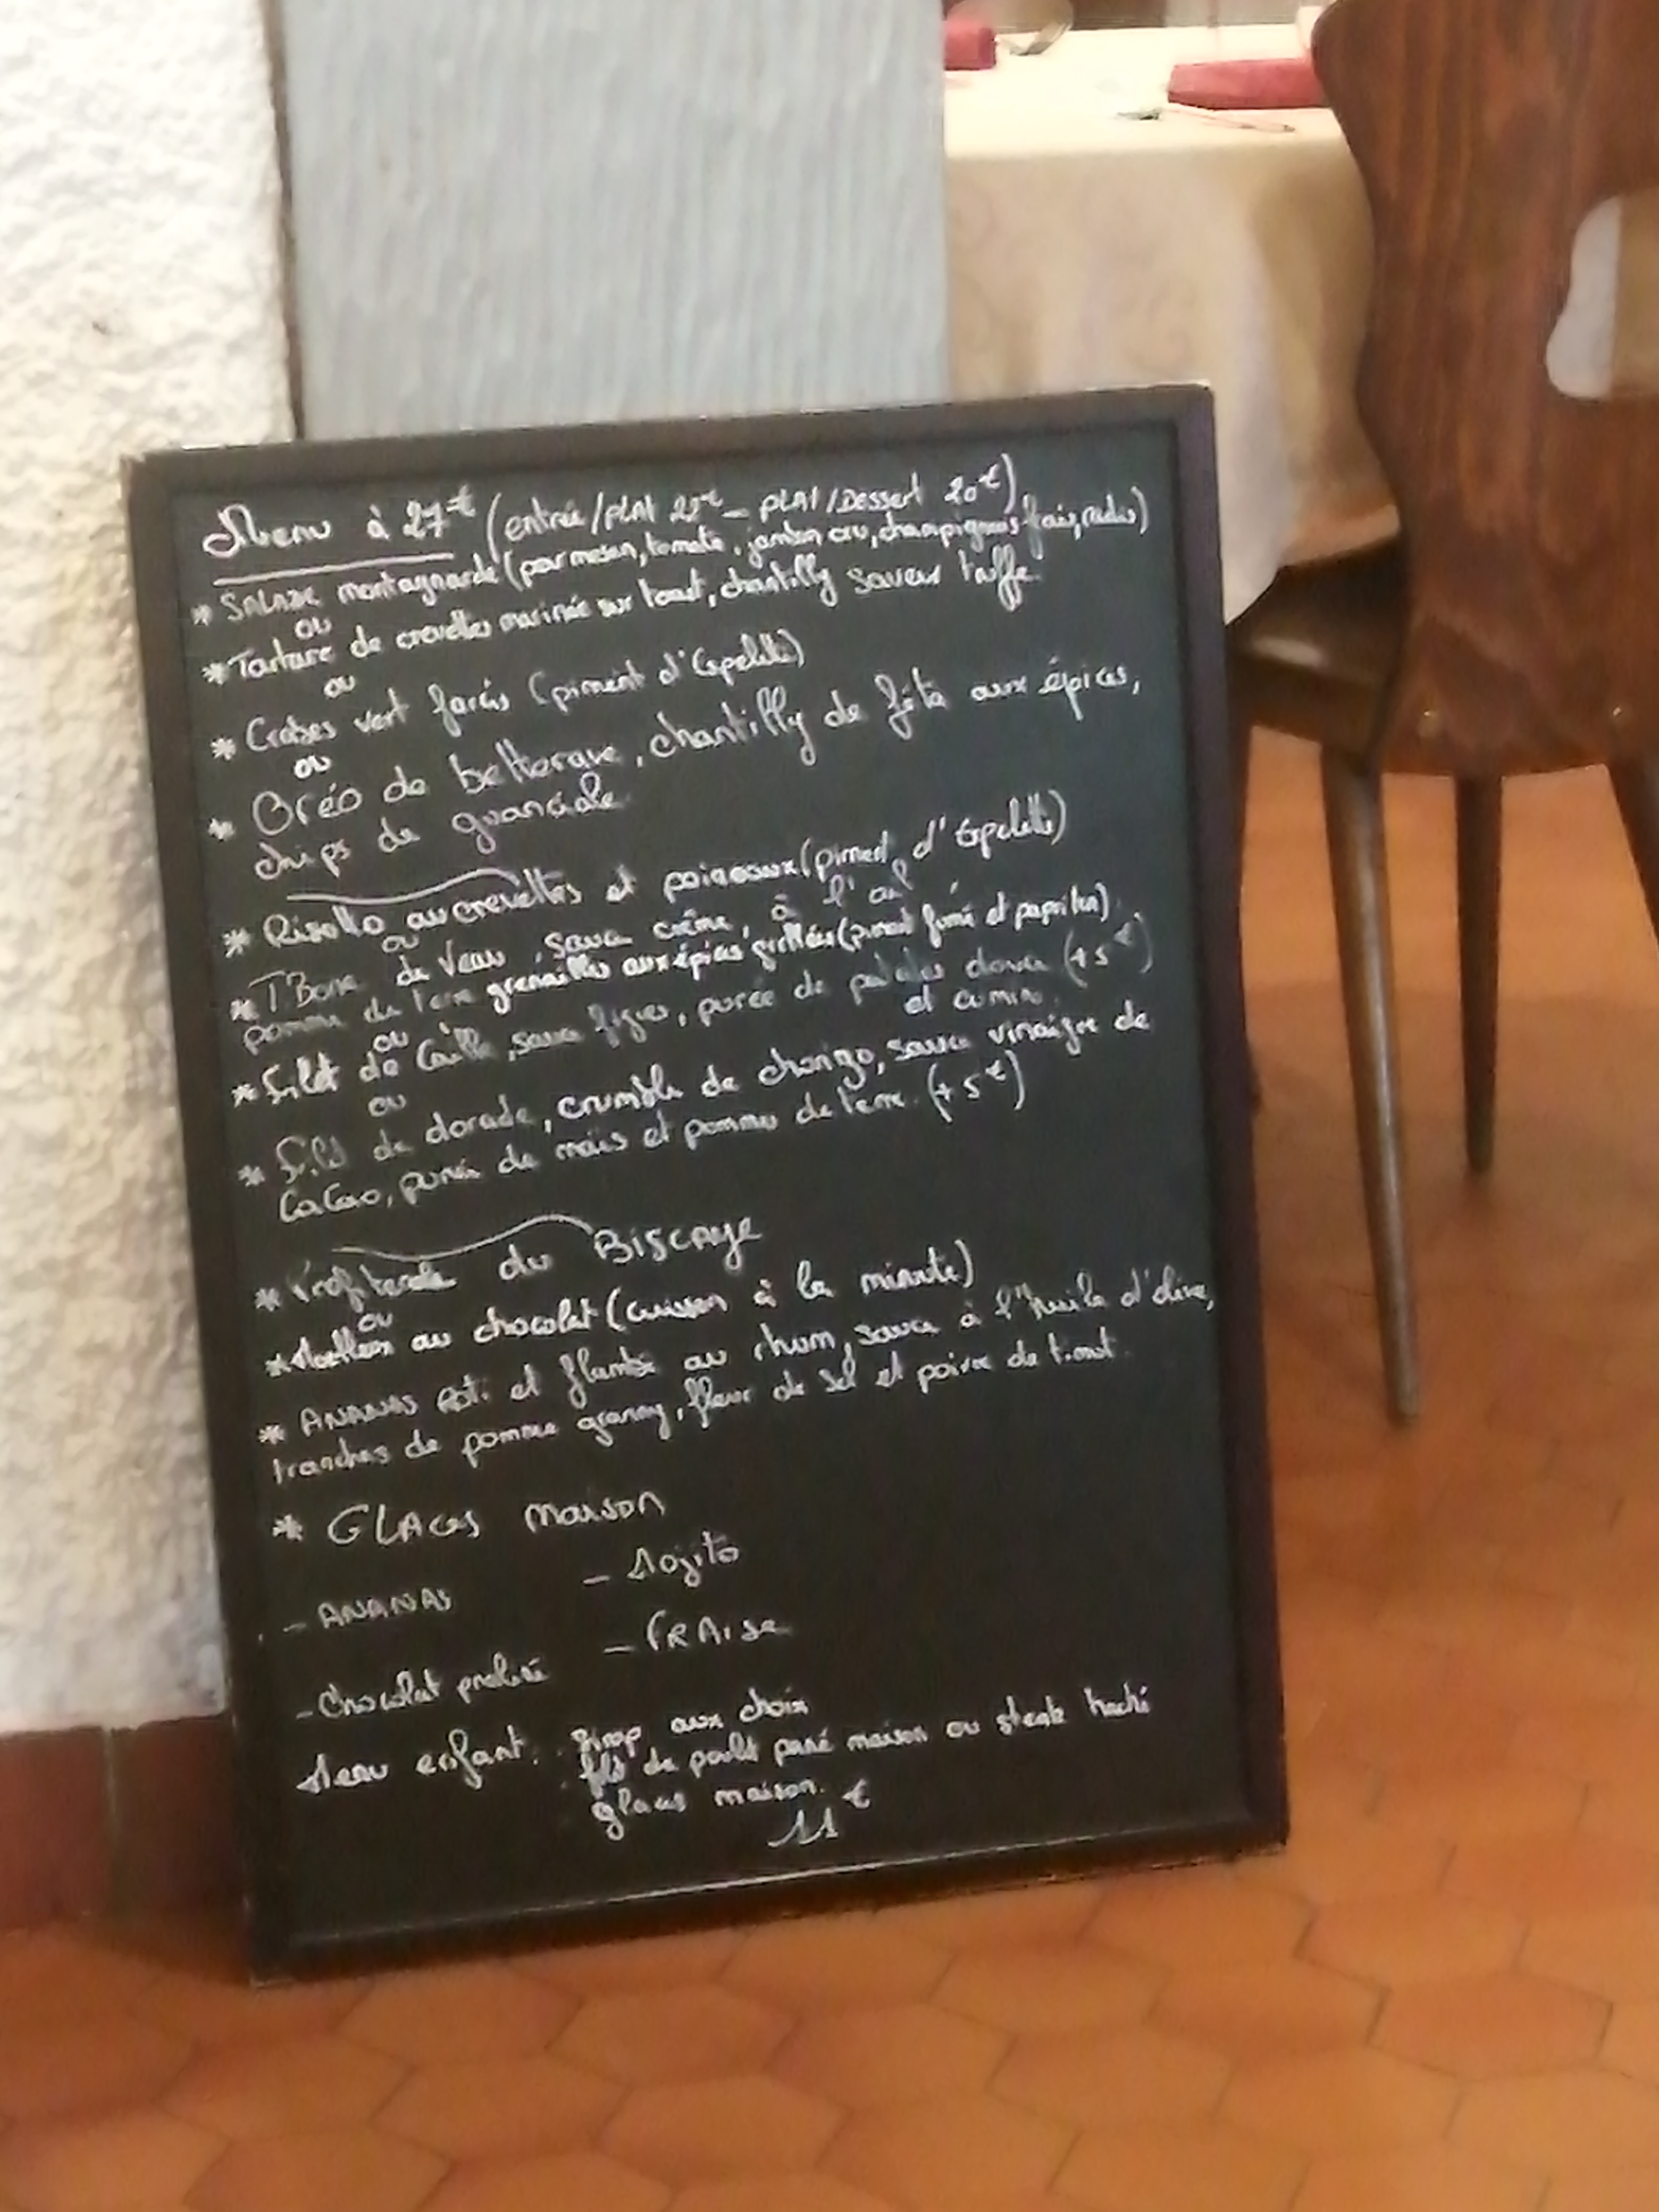 Menu à 27€ (entrée/PLAT 22€ - PLAT/Dessert 20€)
* SALADE montagnarde (parmesan, tomate, jambon cru, champignons frais, radis)
ou
* Tartare de crevettes marinée sur toast, chantilly saveur truffe.
ou
* Crabes vert farcis (piment d'Espelette)
ou
* Oréo de betterave, chantilly de féta aux épices,
chips de guanciale.
* Risotto aux crevettes et poireaux (piment d'Espelette)
ou
* T'Bone de Veau, sauce crème, à l'ail
pomme de terre grenailles aux épices grillées (piment fumé et paprika)
ou
* Filet de Caille, sauce figues, purée de patates douce (+5€)
et cumin.
ou
* Filet de dorade, crumble de chorizo, sauce vinaigre de
CaCao, purée de maïs et pomme de terre. (+5€)
* Profiterole du BISCAYE
ou
* Moelleux au chocolat (cuisson à la minute)
* ANANAS Roti et flambé au rhum, sauce à l'huile d'olive,
tranches de pomme granny, fleur de sel et poivre de timut.
* GLACES maison
- Mojito
- ANANAS
- FRAise
- Chocolat praliné
Menu enfant: Sirop aux choix
filet de poulet pané maison ou steak haché
glaces maison.
11€